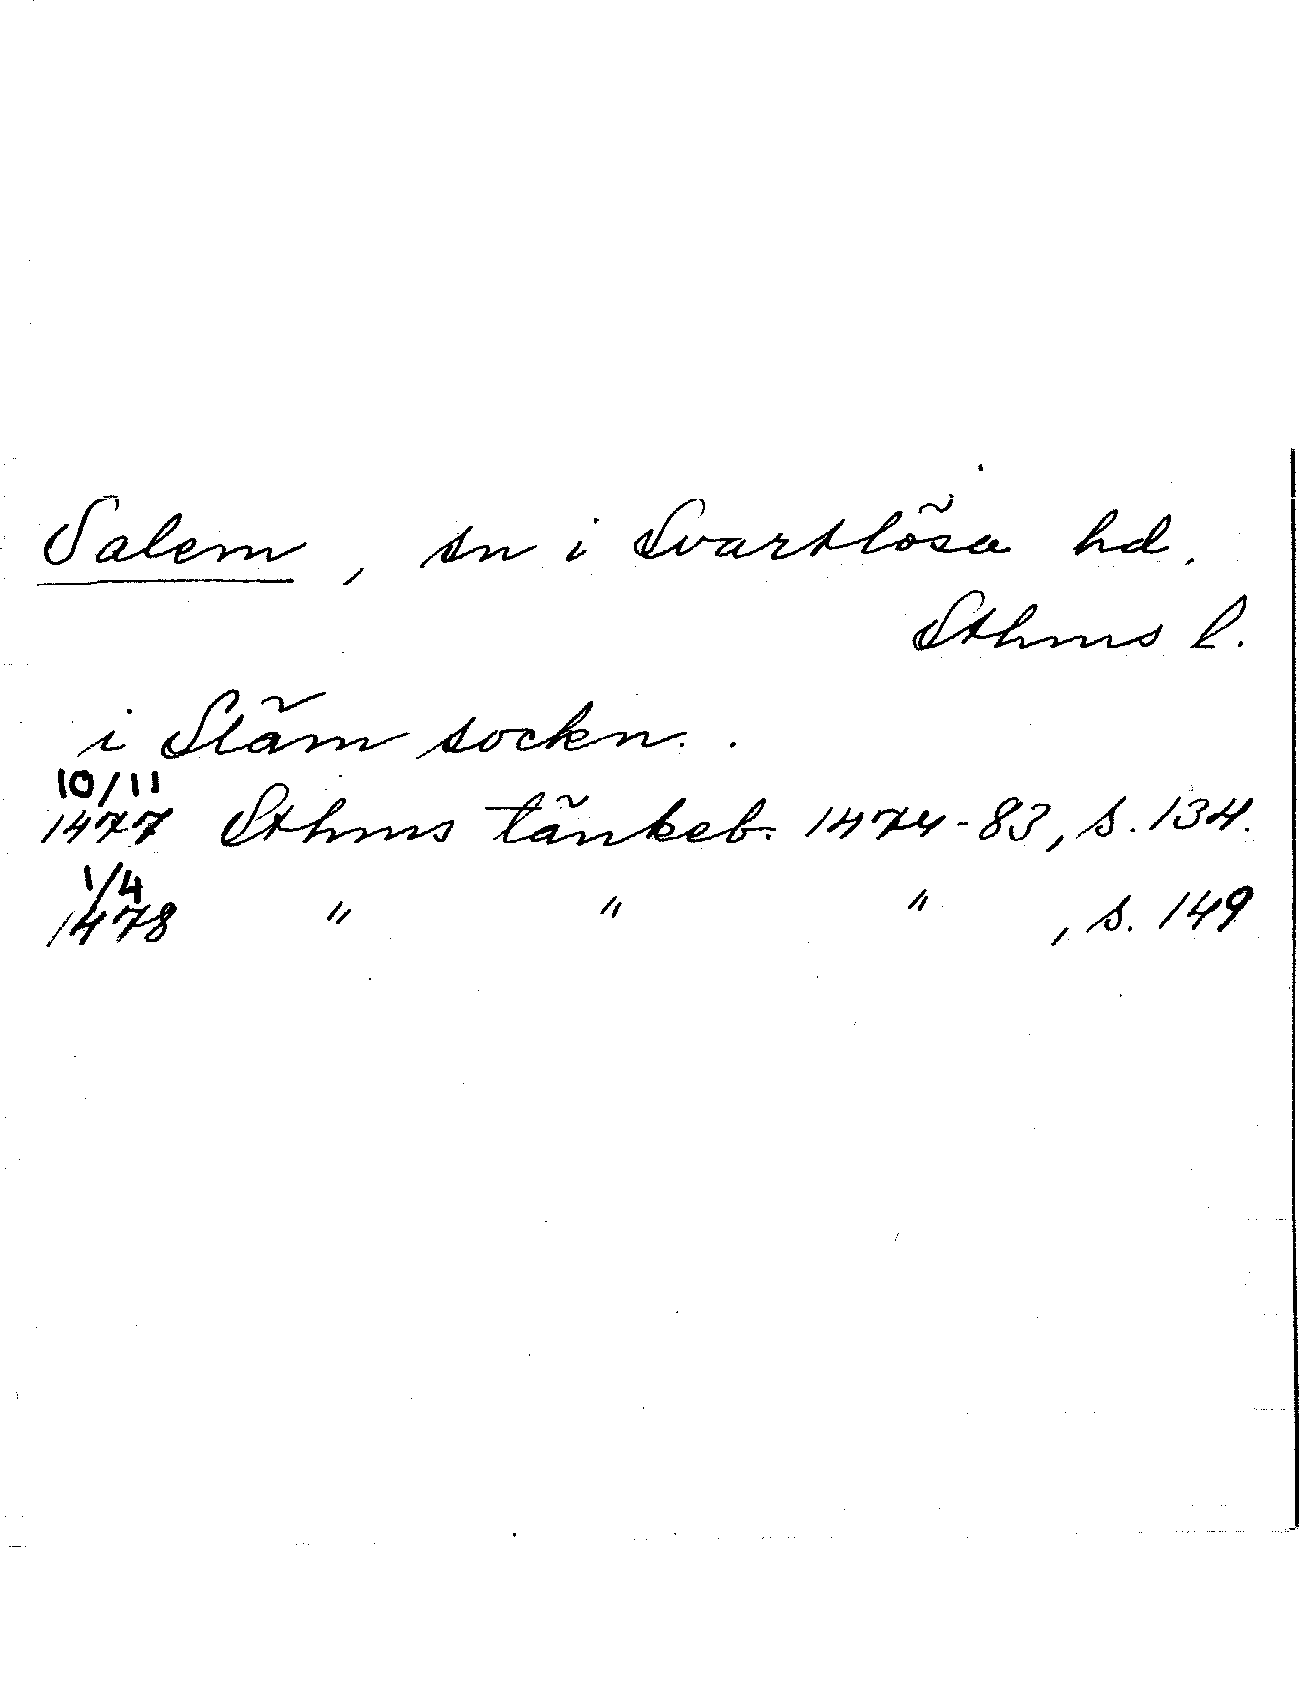 Salem, sn i Svartlösa hd.
Sthms l.
i Släm sockn..
10/11
1477 Sthms tänkeb. 1474-83, s. 134.
1/4
1478 " " " , s. 149